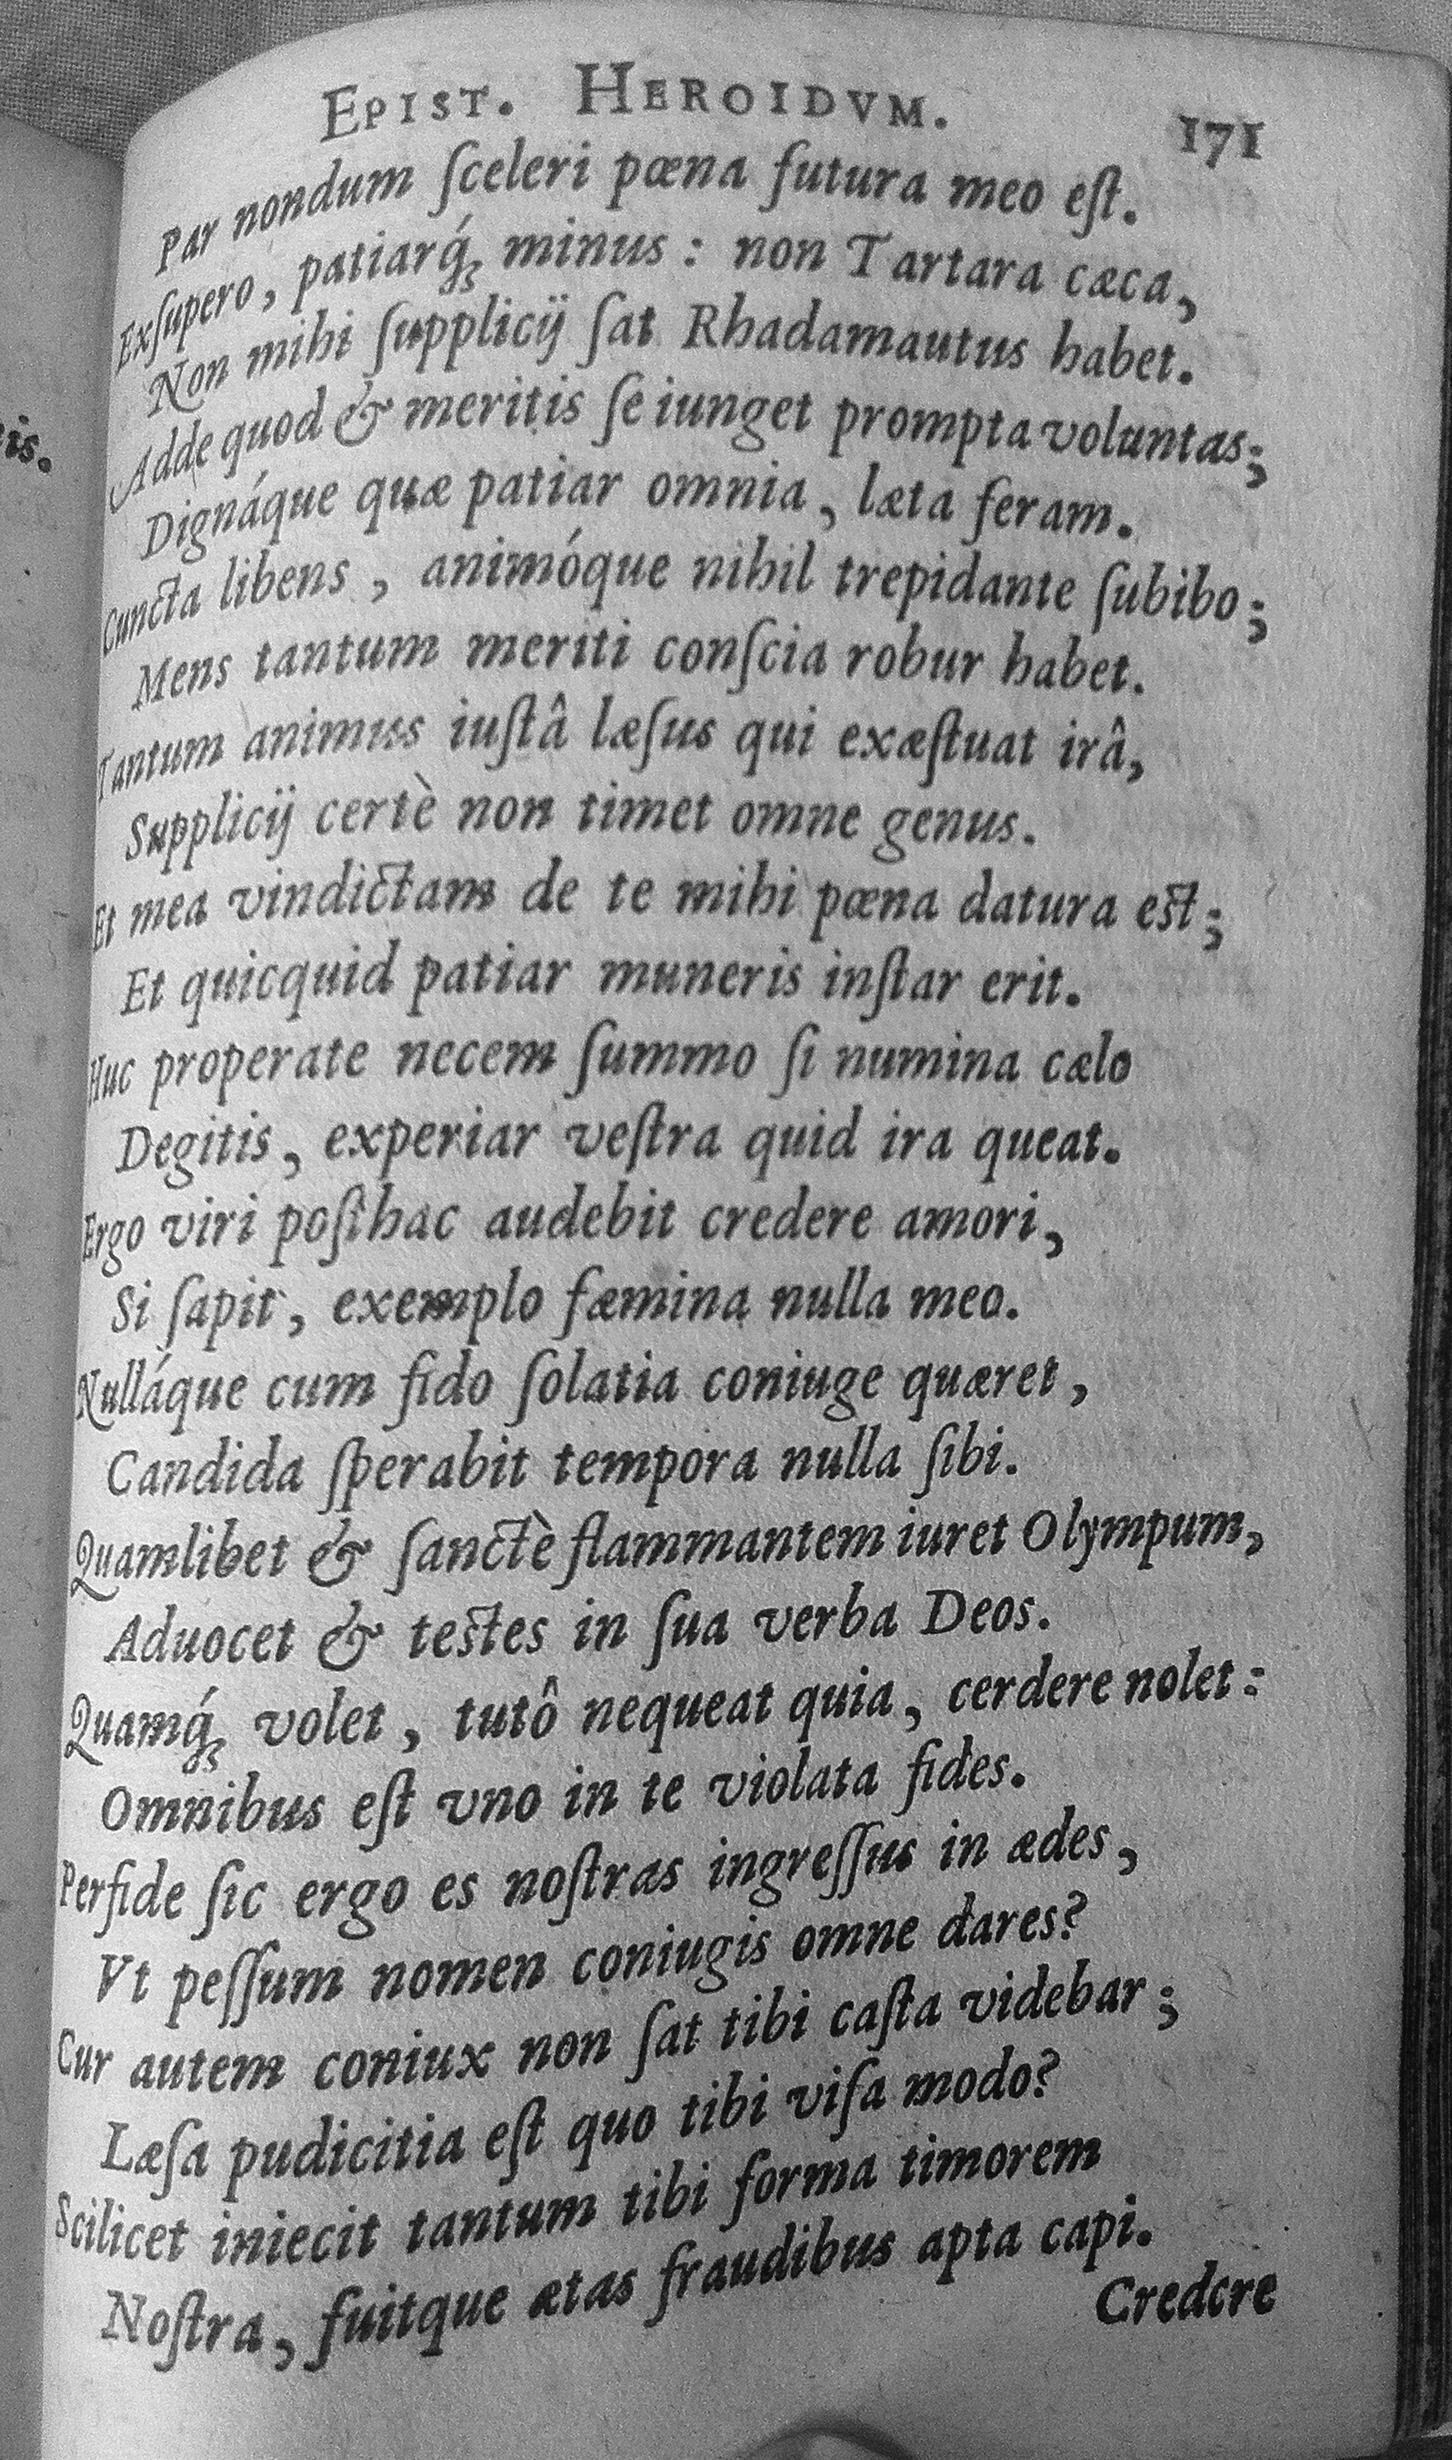 EPIST. HEROIDVM. 171
Par nondum ſceleri pœna futura meo eſt.
Exſupero, patiarq́; minus: non Tartara cæca,
Non mihi ſupplicij ſat Rhadamautus habet.
Adde quod & meritis ſe iunget prompta voluntas;
Dignáque quæ patiar omnia, læta feram.
Cuncta libens, animóque nihil trepidante ſubibo;
Mens tantum meriti conſcia robur habet.
Tantum animus iuſtâ læſus qui exæſtuat irâ,
Supplicij certè non timet omne genus.
Et mea vindictam de te mihi pœna datura eſt;
Et quicquid patiar muneris inſtar erit.
Huc properate necem ſummo ſi numina cælo
Degitis, experiar veſtra quid ira queat.
Ergo viri poſthac audebit credere amori,
Si ſapit, exemplo fæmina nulla meo.
Nulláque cum fido ſolatia coniuge quæret,
Candida ſperabit tempora nulla ſibi.
Quamlibet & ſanctè flammantem iuret Olympum,
Aduocet & teſtes in ſua verba Deos.
Quamq́; volet, tutô nequeat quia, cerdere nolet:
Omnibus eſt vno in te violata fides.
Perfide ſic ergo es noſtras ingreſſus in ædes,
Vt peſſum nomen coniugis omne dares?
Cur autem coniux non ſat tibi caſta videbar;
Læſa pudicitia eſt quo tibi viſa modo?
Scilicet iniecit tantum tibi forma timorem
Noſtra, fuitque ætas fraudibus apta capi.
Credere
is.